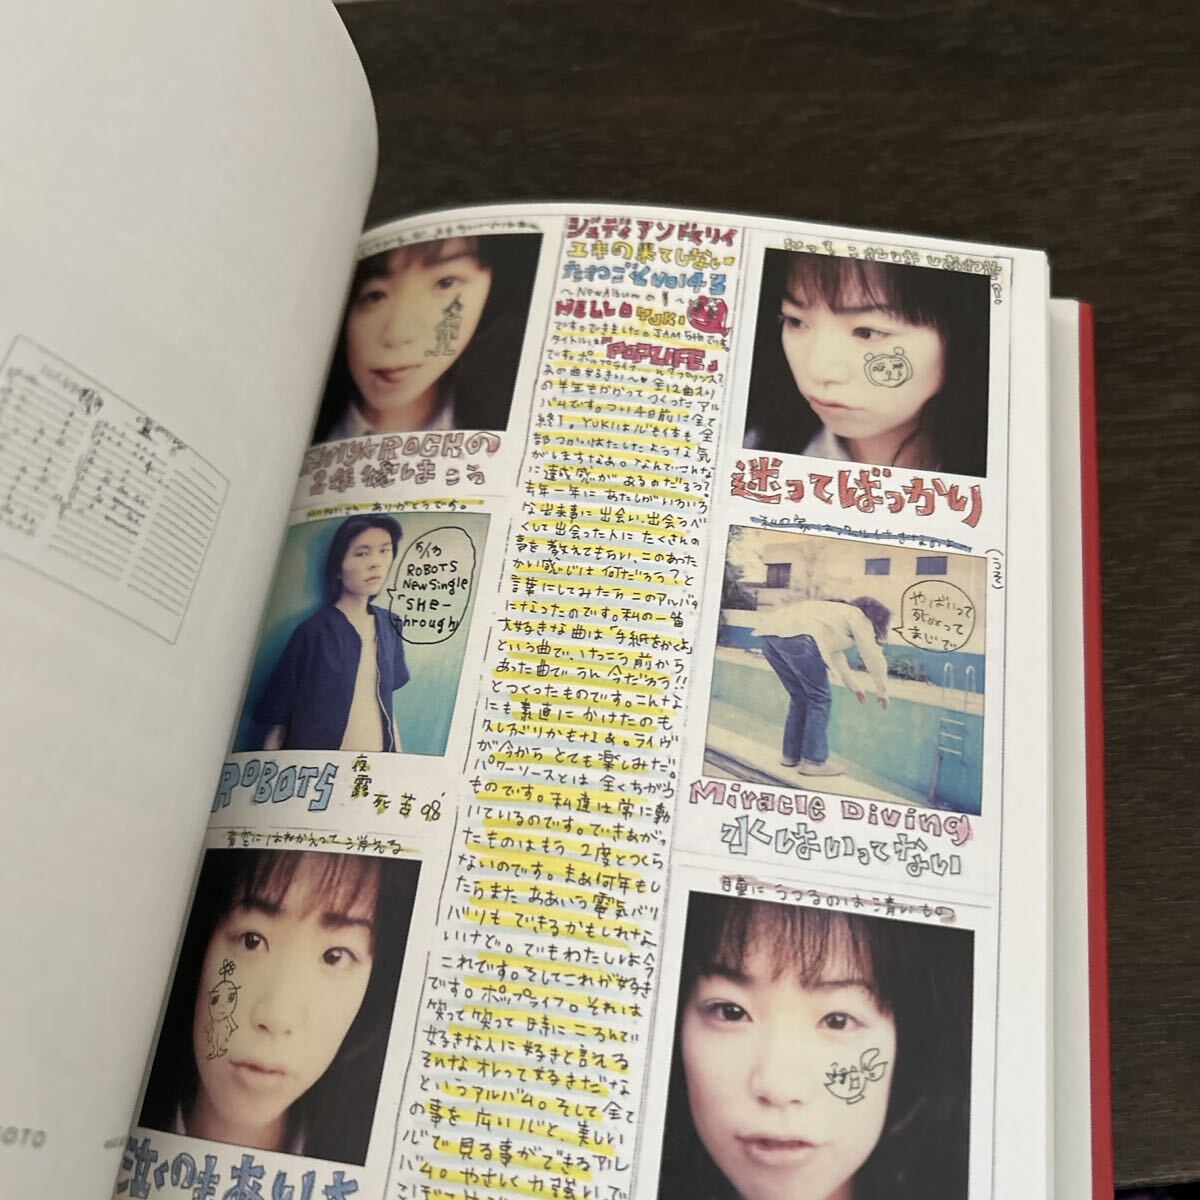 Girly★ROCKの
2年続はこう
ありがとうです。
5/13
ROBOTS
NewSingle
「SHe-
through」
ROBOTS
夜
露
死苦98'
青空にはねかえって消える
泣くのもありよ
ジュディアンドマリイ
ユキの果てしない
たわごと vol43
〜NewAlbumの巻〜
HELLO YUKI
です。できました。JAM 5thです。
タイトルは『POPLIFE』
です。ポップライフ…
あの曲好きい♥全12曲入り
の半年もかかってつくったアル
バムです。つい4日前に全て
終了。YUKIは心も体も全
部つかいはたしたような気
がしますなあ。なんでこんな
に達成感があるのだろう?
去年一年にあたしがいろいろ
な出来事に出会い、出会うべ
くして出会った人にたくさんの
事を教えてもらい、このあった
かい感じは何だろう?と
言葉にしてみたらこのアルバム
になったのです。私の一番
大好きな曲は「手紙をかくよ」
という曲で、けっこう前から
あった曲でうん今だろう!!
とつくったものです。こんな
にも素直にかけたのも
久しぶりかもなぁ。ライヴ
が今からとても楽しみだ。
パワーソースとは全くちがう
ものです。私達は常に動
いているのです。できあがっ
たものはもう2度とつくら
ないのです。まあ何年もし
たらまたああいう電気バリ
バリもできるかもしれな
いけど。でもわたしは今
これです。そしてこれが好き
です。ポップライフ。それは
笑って笑って時にころんで
好きな人に好きと言える
そんなオレって好きだな
というアルバム。そして全て
の事を広い心と、美しい
心で見る事ができるアル
バム。やさしく力強いで
迷ってばっかり
(つづく)
やばいって
死ぬって
まじで
Miracle Diving
水はいってない
瞳にうつるのは清いもの
OTO